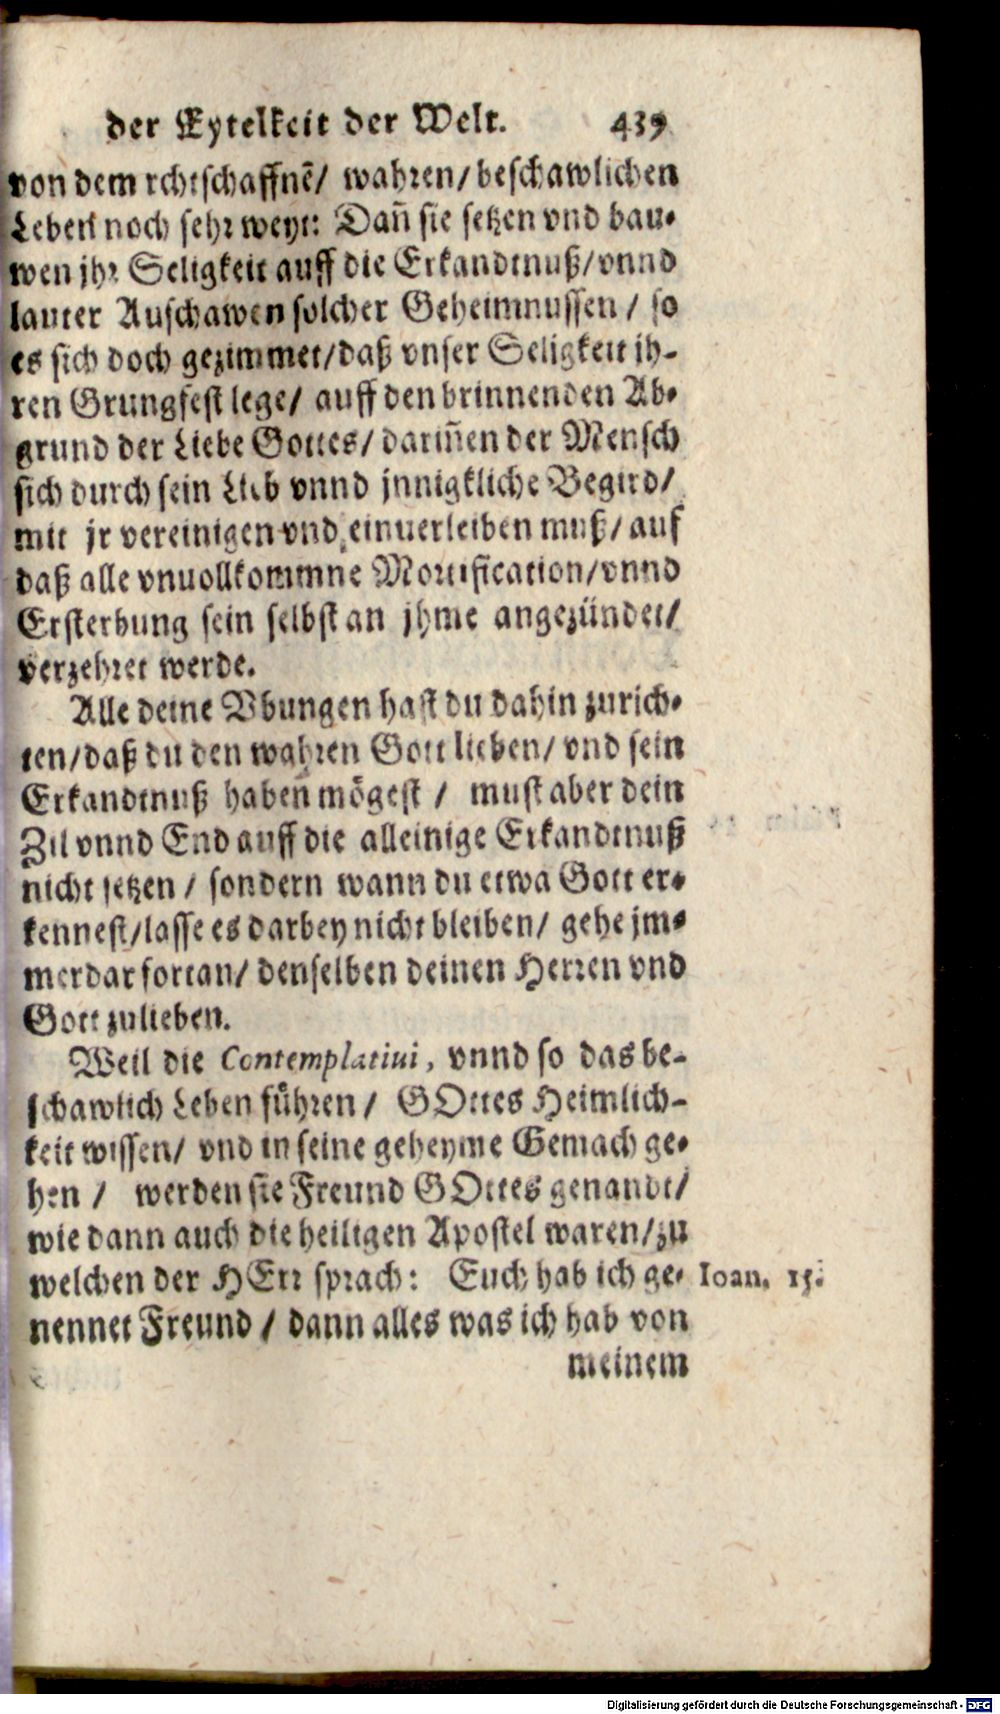 der Eytelkeit der Welt. 439
von dem rchtschaffnē/ wahren/ beschawlichen
Leben noch sehr weyt: Dañ sie setzen vnd bau-
wen jhr Seligkeit auff die Erkandtnuß/ vnnd
lauter Auschawen solcher Geheimnussen / so
es sich doch gezimmet/ daß vnser Seligkeit ih-
ren Grungfest lege/ auff den brinnenden Ab-
grund der Liebe Gottes/ dariñen der Mensch
sich durch sein Lieb vnnd jnnigkliche Begird/
mit jr vereinigen vnd einuerleiben muß/ auf
daß alle vnuollkommne Mortification/ vnnd
Ersterbung sein selbst an jhme angezündet/
verzehret werde.
Alle deine Vbungen hast du dahin zurich-
ten/ daß du den wahren Gott lieben/ vnd sein
Erkandtnuß haben mögest / must aber dein
Zil vnnd End auff die alleinige Erkandtnuß
nicht setzen / sondern wann du etwa Gott er-
kennest/ lasse es darbey nicht bleiben/ gehe jm-
merdar fortan/ denselben deinen Herren vnd
Gott zulieben.
Weil die Contemplatiui, vnnd so das be-
schawlich Leben führen / GOttes Heimlich-
keit wissen/ vnd in seine geheyme Gemach ge-
hen / werden sie Freund GOttes genandt/
wie dann auch die heiligen Apostel waren/ zu
welchen der HErr sprach: Euch hab ich ge- Ioan. 15.
nennet Freund / dann alles was ich hab von
meinem
Digitalisierung gefördert durch die Deutsche Forschungsgemeinschaft - DFG